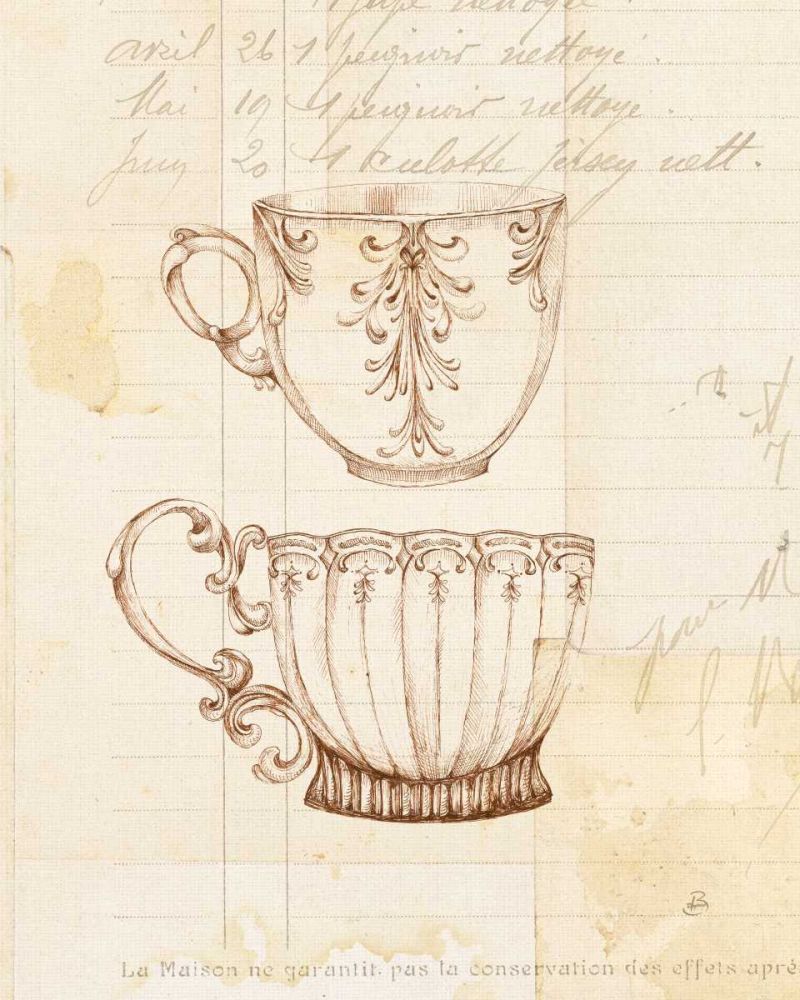 1 jupe nettoyée
avril 26 1 peignoir nettoyé.
Mai 19 1 peignoir nettoyé.
Juin 20 1 culotte jersey nett.
pour
La Maison ne garantit pas la conservation des effets aprè